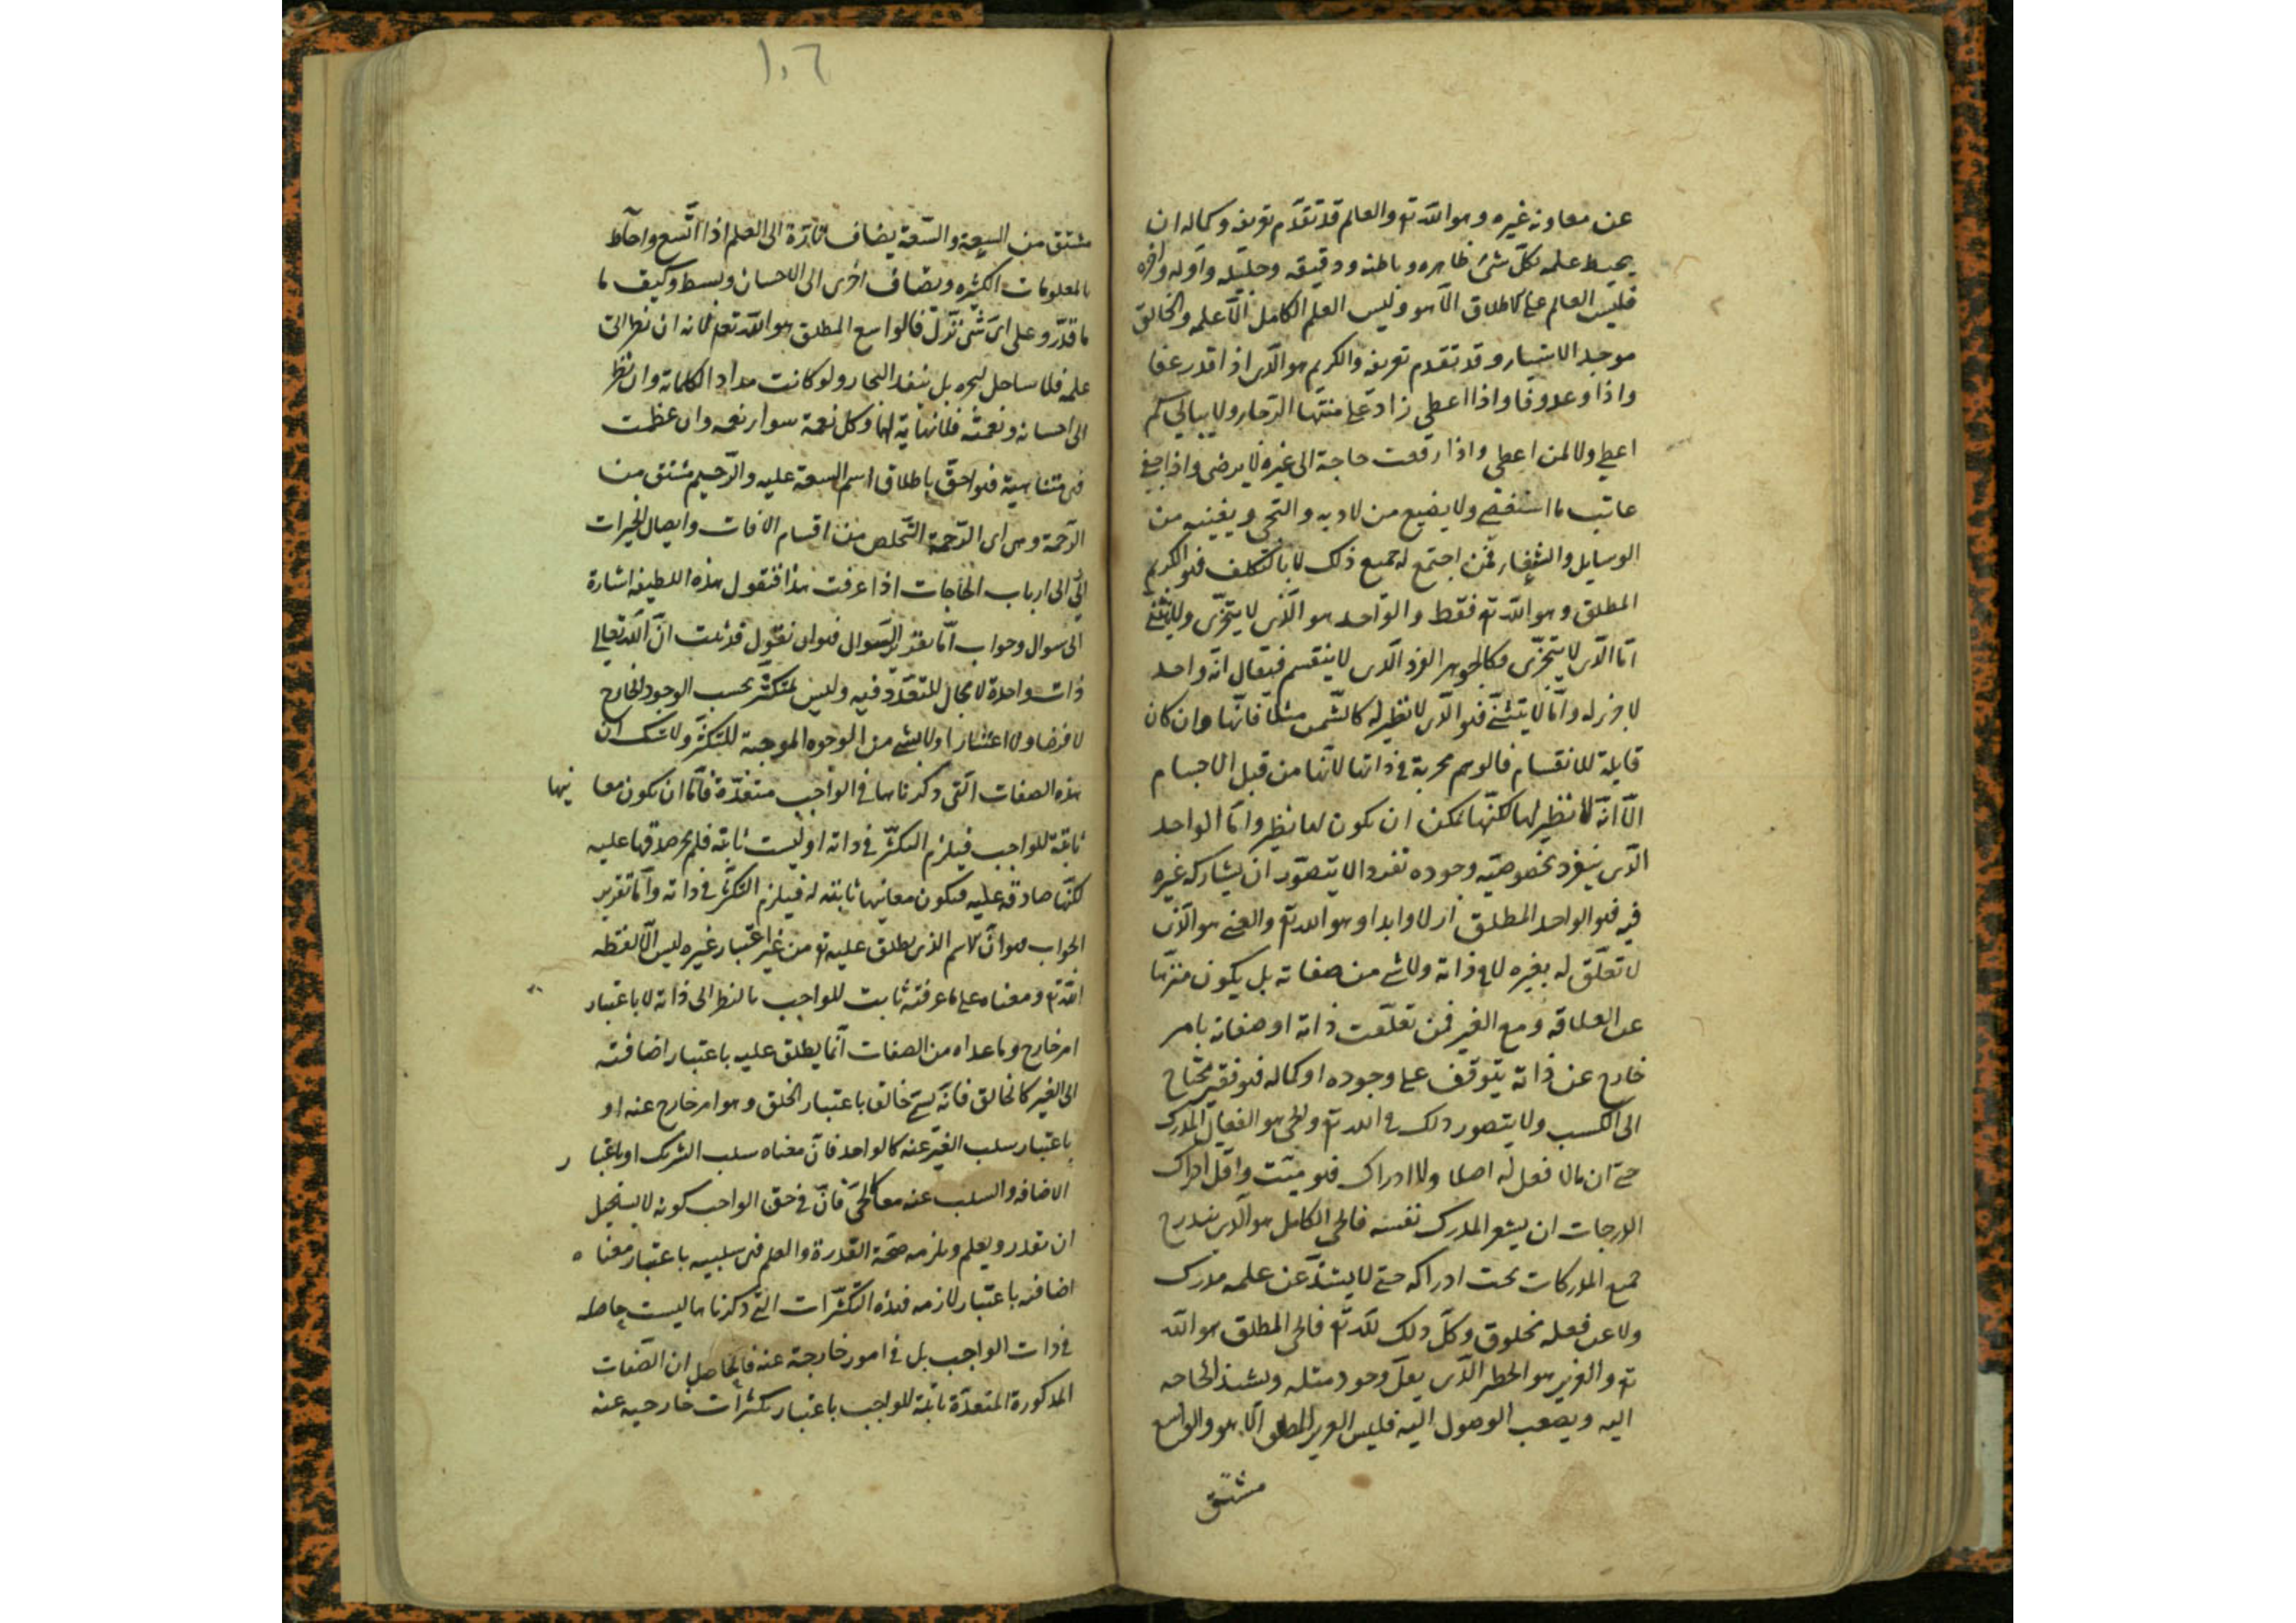 عن معاونه غيره وهو الله تع والعالم قد تقدم تعريفه وكماله ان
يحيط علمه بكل شئ ظاهره وباطنه ودقيقه وجليله واوله واخره
فليس العالم على الاطلاق الا هو وليس العلم الكامل الا علمه والخالق
موجد الاشياء وقد تقدم تعريفه والكريم هو الذي اذا قدر عفا
واذا وعد وفا واذا اعطي زاد على منتها الرجاء ولا يبالي كم
اعطي ولا لمن اعطي واذا رفعت حاجة الى غيره لا يرضى واذا جفى
عاتب ما استقصى ولا يضيع من لاذ به والتجى ويغنيه من
الوسايل والشفعاء فمن اجتمع له جميع ذلك لا بالتكلف فهو الكريم
المطلق وهو الله تع فقط والواحد هو الذي لا يتجزى ولا يتثنى
اما الذي لا يتجزى فكالجوهر الفرد الذي لا ينقسم فيقال انه واحد
لا جزء له واما لا يتثنى فهو الذي لا نظير له كالشمس مثلا فانها وان كان
قابلة للانقسام فالوهم محرية في ذاتها لانها من قبل الاجسام
الا انه لا نظير لها لكنها يمكن ان يكون لها نظير واما الواحد
الذي ينفرد بخصوصية وجوده تفردا لا يتصور ان يشاركه غيره
فيه فهو الواحد المطلق ازلا وابدا وهو الله تع والغني هو الذي
لا تعلق له بغيره لا في ذاته ولا شئ من صفاته بل يكون منزها
عن العلاقه ومع الغير فمن تعلقت ذاته او صفاته بامر
خارج عن ذاته يتوقف على وجوده او كماله فهو فقير محتاج
الى الكسب ولا يتصور ذلك في الله تع والحي هو الفعال المدرك
حتى ان ما لا فعل له اصلا ولا ادراك فهو ميت واقل ادراك
الدرجات ان يشعر المدرك نفسه فالحي الكامل هو الذي يندرج
جميع المدركات تحت ادراكه حتى لا يشذ عن علمه مدرك
ولا عن فعله مخلوق وكل ذلك لله تع فالحي المطلق هو الله
تع والعزيز هو الخطير الذي يقل وجود مثله وتشتد الحاجه
اليه ويصعب الوصول اليه فليس العزيز المطلق الا هو والواسع
مشتق
١٠٦
مشتق من السعة والسعة يضاف تارة الى العلم اذا اتسع واحاط
بالمعلومات الكثيره ويضاف اخرى الى الاحسان وبسط وكيف ما
ما قدر وعلى اي شئ نزل فالواسع المطلق هو الله تعم لانه ان نظر الى
علمه فلا ساحل لبحره بل ينفد البحار ولو كانت مدادا لكلماته وان نظر
الى احسانه ونعمته فلا نهاية لها وكل نعمة سواء نعمه وان عظمت
فهى متناهية فهو احق باطلاق اسم السعة عليه والرحيم مشتق من
الرحمة وهي اى الرحمة التخلص من اقسام الافات وايصال الخيرات
الى ارباب الحاجات اذا عرفت هذا فنقول هذه اللطيفه اشارة
الى سوال وجواب اما تقرير السوال فهو ان نقول قد ثبت ان الله تعالى
ذات واحدة لا مجال للتعدد فيه وليس بمتكثر بحسب الوجود الخارج
لا فرضا ولا اعتبارا ولا بشئ من الوجوه الموجبة للتكثر ولا شك ان
هذه الصفات التي ذكرناها في الواجب متعددة فاما ان يكون معا نيها
ثابتة للواجب فيلزم التكثر في ذاته او ليست ثابته فلم يجز صدقها عليه
لكنها صادقه عليه فيكون معانيها ثابته له فيلزم التكثر في ذاته واما تقرير
الجواب فهو ان الاسم الذي يطلق عليه تع من غير اعتبار غيره ليس الا لفظه
الله تع ومعناه على ما عرفته ثابت للواجب بالنظر الى ذاته لا باعتبار
امر خارج وما عداه من الصفات انما يطلق عليه باعتبار اضافته
الى الغير كالخالق فانه يسمى خالقا باعتبار الخلق وهو امر خارج عنه او
باعتبار سلب الغير عنه كالواحد فان معناه سلب الشريك او باعتبا ر
الاضافه والسلب عنه معا كالحي فان في حق الواجب كونه لا يستحيل
ان يقدر ويعلم ويلزمه صحة القدرة والعلم فهى سلبيه باعتبار معنا ه
اضافته باعتبار لازمه فهذه التكثرات التي ذكرناها ليست حاصله
في ذات الواجب بل في امور خارجة عنه فالحاصل ان الصفات
المذكورة المتعددة ثابتة للواجب باعتبار تكثرات خارجيه عنه